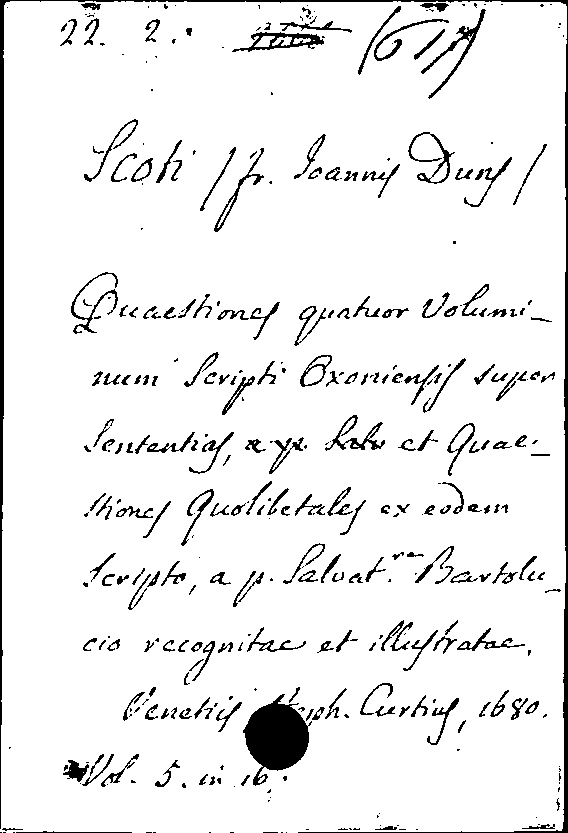 22. 2.
Scoti / fr. Joannis Duns /
Quaestiones quatuor Volumi-
num Scripti Oxoniensis super
Sententias, a p. Salv et Quae-
stiones Quolibetales ex eodem
Scripto, a p. Salvat.re Bartolu-
cio recognitae et illustratae.
Venetiis Steph. Curtius, 1680.
Vol. 5. in 16.